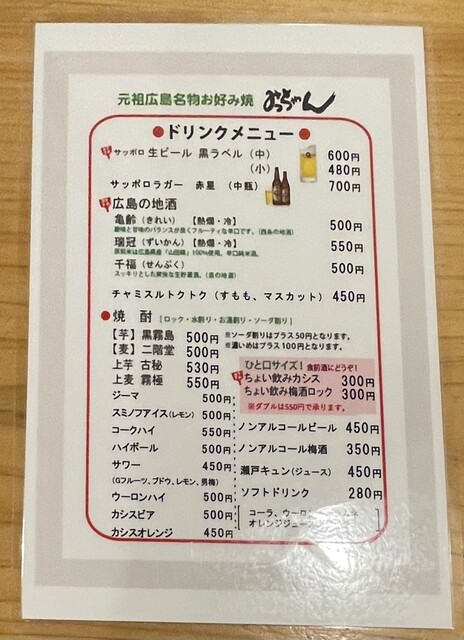 元祖広島名物お好み焼 みっちゃん
●ドリンクメニュー●
サッポロ 生ビール 黒ラベル (中) 600円
(小) 480円
サッポロラガー 赤星 (中瓶) 700円
広島の地酒
亀齢(きれい)【熱燗・冷】 500円
酸味と甘味のバランスが良くフルーティな辛口です。(西条の地酒)
瑞冠(ずいかん)【熱燗・冷】 550円
千福(せんぷく) 500円
スッキリとした爽快な生貯蔵酒。(呉の地酒)
チャミスルトクトク(すもも、マスカット) 450円
●焼 酎 [ロック・水割り・お湯割り・ソーダ割り]
【芋】黒霧島 500円
【麦】二階堂 500円
上芋 古秘 530円
上麦 霧極 550円
ジーマ 500円
スミノフアイス(レモン) 500円
コークハイ 550円
ハイボール 500円
サワー 450円
(Gフルーツ、ブドウ、レモン、男梅)
ウーロンハイ 500円
カシスビア 500円
カシスオレンジ 450円
※ソーダ割りはプラス50円となります。
※濃いめはプラス100円となります。
ひと口サイズ! 食前酒にどうぞ!
ちょい飲みカシス 300円
ちょい飲み梅酒ロック 300円
※ダブルは550円で承ります。
ノンアルコールビール 450円
ノンアルコール梅酒 350円
瀬戸キュン(ジュース) 450円
ソフトドリンク 280円
コーラ、ウーロン
オレンジジュース